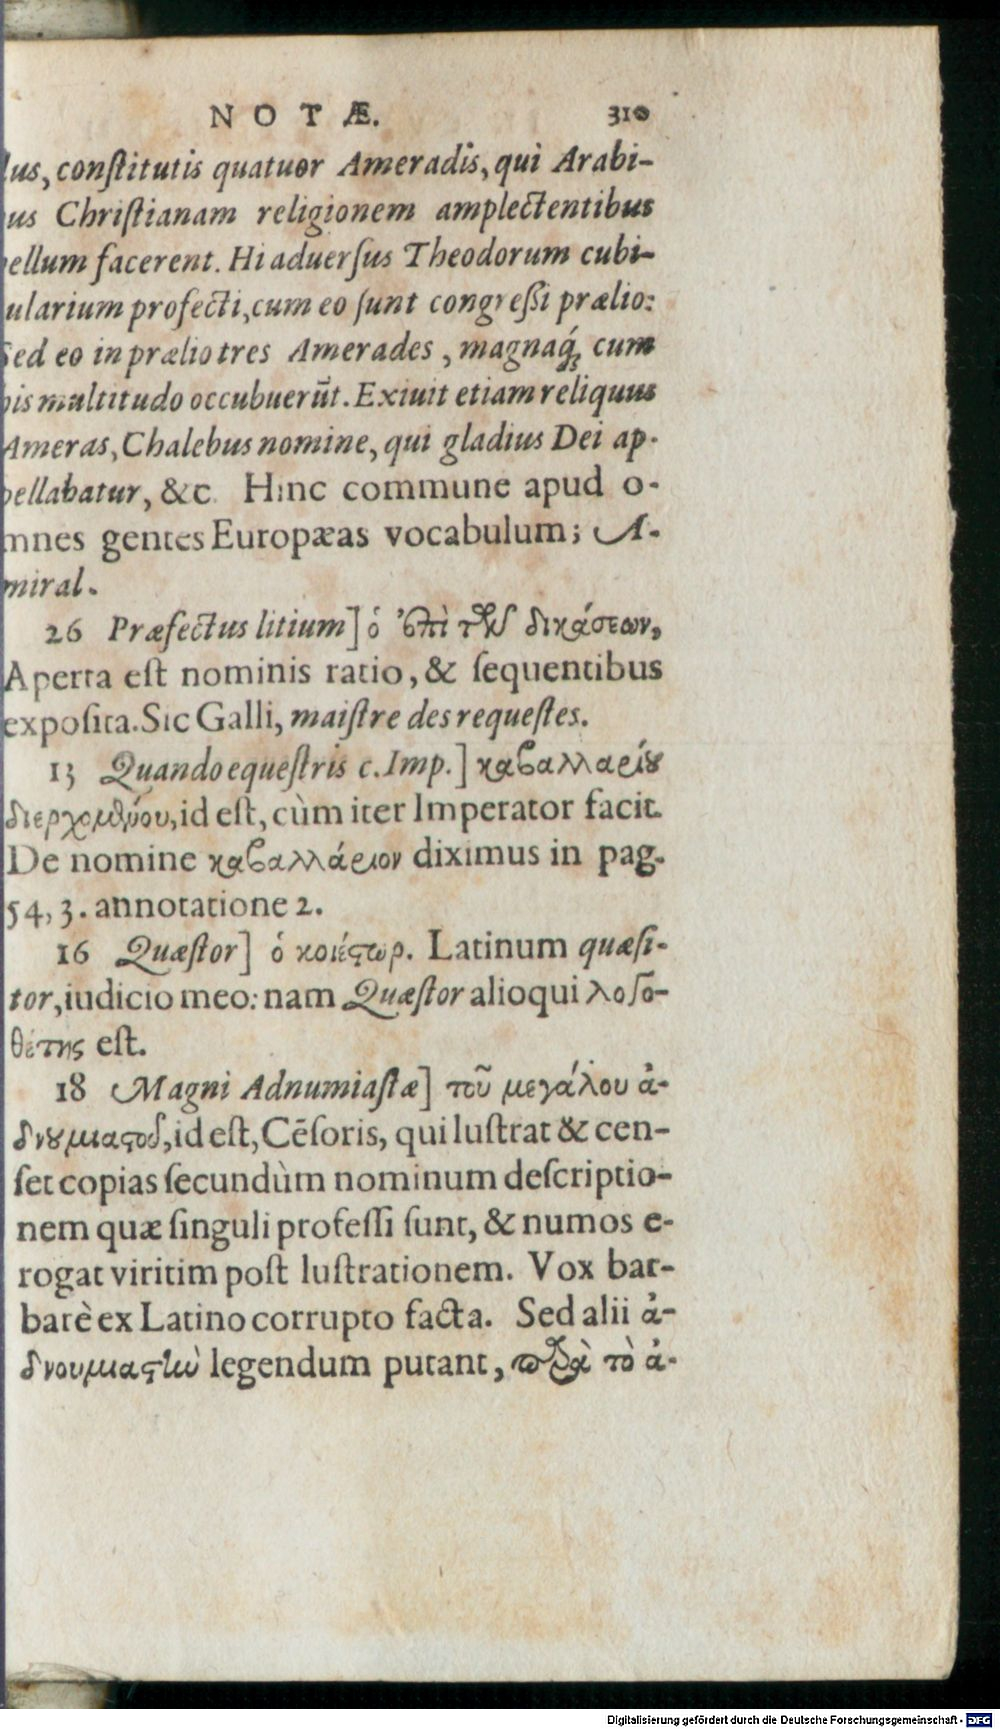 NOTÆ. 310
lus, conſtitutis quatuor Ameradis, qui Arabi-
us Chriſtianam religionem amplectentibus
ellum facerent. Hi aduerſus Theodorum cubi-
ularium profecti, cum eo ſunt congreſſi prælio:
Sed eo in prælio tres Amerades, magnaq́; cum
is multitudo occubuerūt. Exiuit etiam reliquus
Ameras, Chalebus nomine, qui gladius Dei ap-
pellabatur, &c. Hinc commune apud o-
mnes gentes Europæas vocabulum; A-
miral.
26 Præfectus litium] ὁ ἐπὶ τῆς δικάσεων,
Aperta eſt nominis ratio, & ſequentibus
expoſita. Sic Galli, maiſtre des requeſtes.
13 Quando equeſtris c. Imp.] καβαλλαρίου
διερχομένου, id eſt, cùm iter Imperator facit.
De nomine καβαλλάριον diximus in pag.
54, 3. annotatione 2.
16 Quæſtor] ὁ κοιέστωρ. Latinum quæſi-
tor, iudicio meo: nam Quæſtor alioqui λογο-
θέτης eſt.
18 Magni Adnumiaſtæ] τοῦ μεγάλου ἀ-
δνουμιαστοῦ, id eſt, Cēſoris, qui luſtrat & cen-
ſet copias ſecundùm nominum deſcriptio-
nem quæ ſinguli profeſſi ſunt, & numos e-
rogat viritim poſt luſtrationem. Vox bar-
barè ex Latino corrupto facta. Sed alii ἀ-
δνουμιαστὴν legendum putant, παρὰ τὸ ἀ-
Digitalisierung gefördert durch die Deutsche Forschungsgemeinschaft - DFG